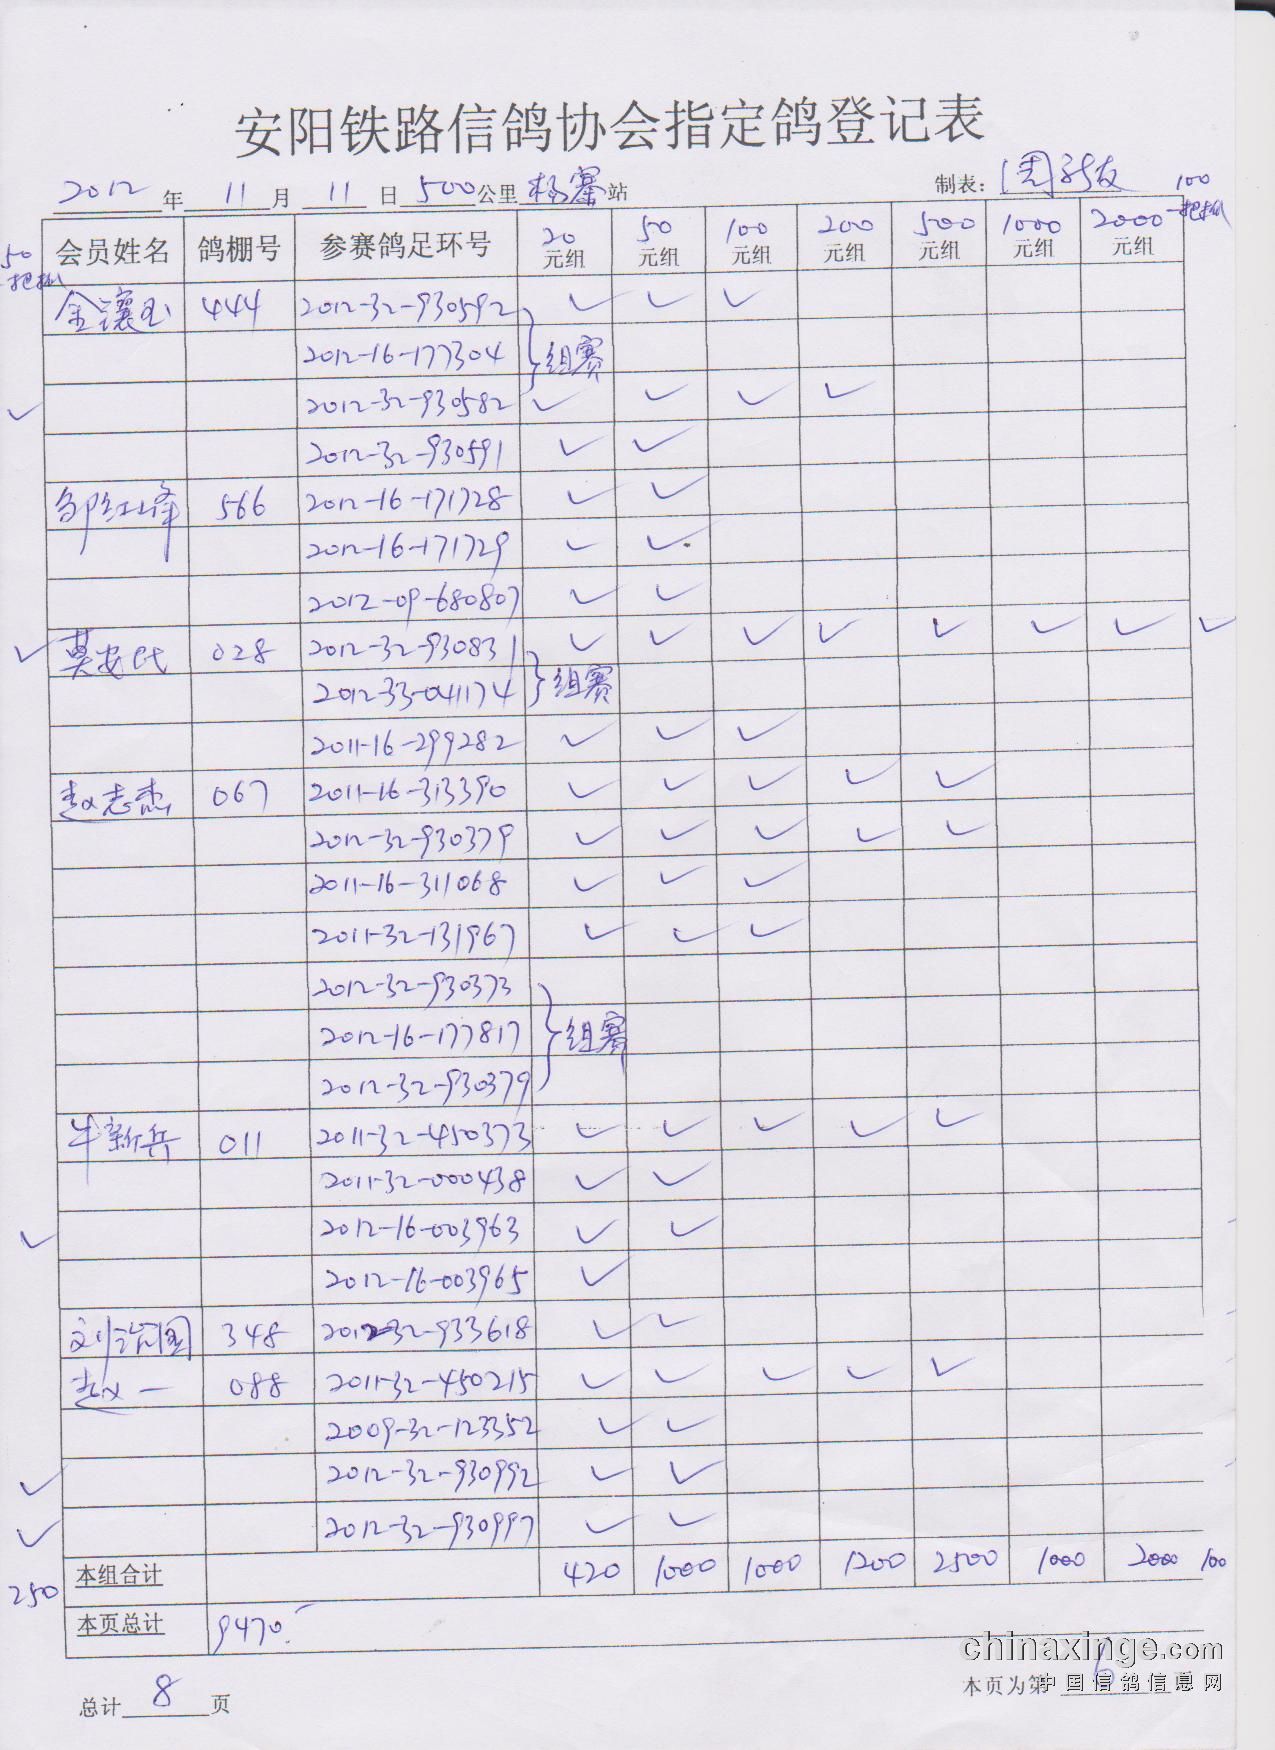 安阳铁路信鸽协会指定鸽登记表
2012年 11月 11日 500公里 杨寨站 制表:
会员姓名 鸽棚号 参赛鸽足环号 20元组 50元组 100元组 200元组 500元组 1000元组 2000元组 100一把抓
50一把抓
金瓖玉 444 2012-32-930592 ✓ ✓ ✓
2012-16-177304 组赛
✓ 2012-32-930582 ✓ ✓ ✓ ✓
2012-32-930591 ✓ ✓
邹红峰 566 2012-16-171728 ✓ ✓
2012-16-171729 ✓ ✓
2012-09-680807 ✓ ✓
✓ 莫安民 028 2012-32-930831 ✓ ✓ ✓ ✓ ✓ ✓ ✓ ✓
2012-33-041174 组赛
2011-16-299282 ✓ ✓ ✓
赵志杰 067 2011-16-313390 ✓ ✓ ✓ ✓ ✓
2012-32-930379 ✓ ✓ ✓ ✓ ✓
2011-16-311068 ✓ ✓ ✓
2011-32-131967 ✓ ✓ ✓
2012-32-930373
2012-16-177817 组赛
2012-32-930379
牛新兵 011 2011-32-450373 ✓ ✓ ✓ ✓ ✓
2011-32-000438 ✓ ✓
✓ 2012-16-003963 ✓ ✓
2012-16-003965 ✓
刘治国 348 2012-32-933618 ✓ ✓
赵一 088 2011-32-450215 ✓ ✓ ✓ ✓ ✓
2009-32-123352 ✓ ✓
✓ 2012-32-930992 ✓ ✓
✓ 2012-32-930997 ✓ ✓
250 本组合计 420 1000 1000 1200 2500 1000 2000 100
本页总计 9470.
chinaxinge.com
总计 8 页 本页为第 6
中国信鸽信息网